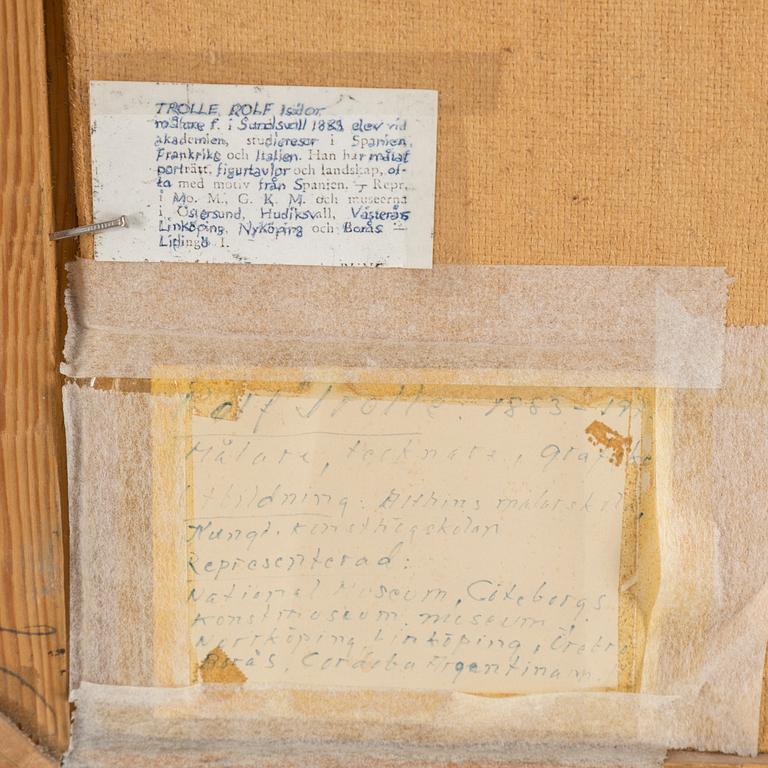 TROLLE, ROLF Isidor
målare f. i Sundsvall 1883 elev vid
akademien, studieresor i Spanien,
Frankrike och Italien. Han har målat
porträtt, figurtavlor och landskap, of-
ta med motiv från Spanien. — Repr.
i Mo. M., G. K. M. och museerna
i Östersund, Hudiksvall, Västerås
Linköping, Nyköping och Borås —
Lidingö 1.
Rolf Trolle. 1883-
Målare, tecknare, grafiker
Utbildning: Althins målarskola,
Kungl. Konsthögskolan
Representerad:
National Museum, Göteborgs
Konstmuseum, museum i
Norrköping, Linköping, Örebro
Borås, Cordoba Argentina